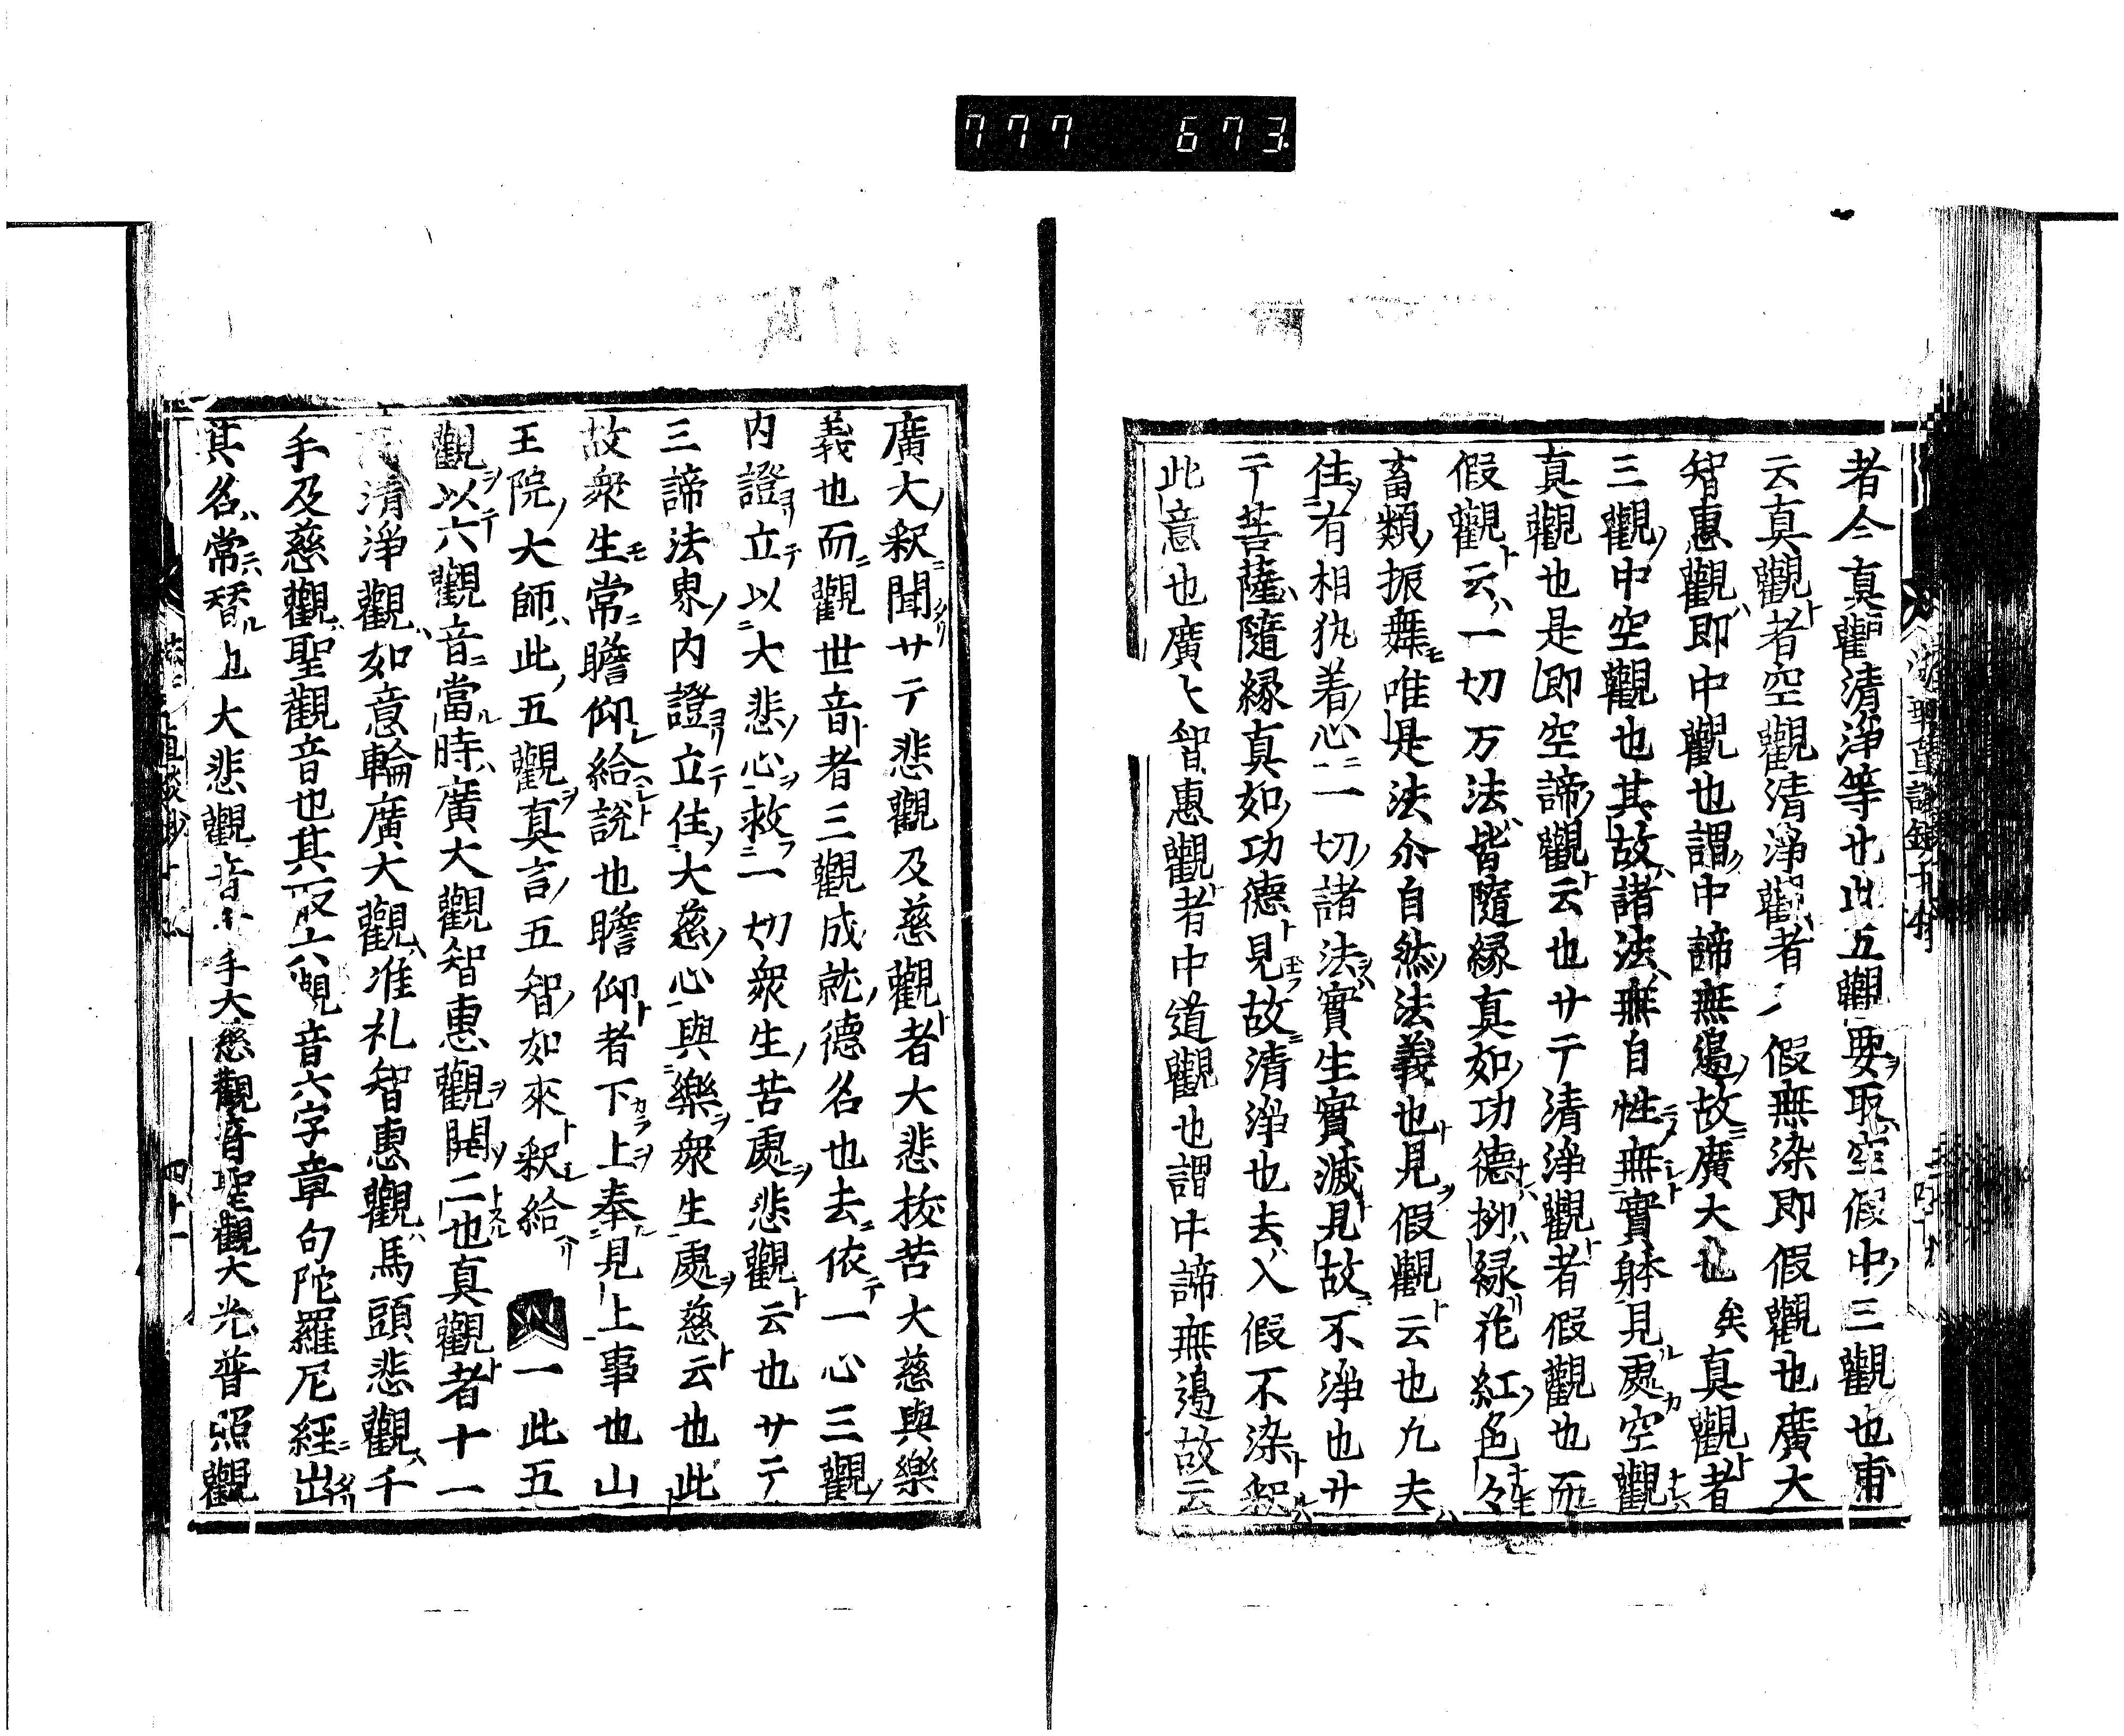 777 673
者今真觀清淨等也此五觀要取空假中三觀也甫
云真觀者空觀清淨觀者假無染即假觀也廣大
智惠觀即中觀也謂中諦無邊故廣大也矣真觀者
三觀中空觀也其故諸法無自性無實躰見處空觀
真觀也是即空諦觀云也サテ清淨觀者假觀也而
假觀云一切万法皆隨縁真如功德柳緑花紅色々
畜類振舞唯是法尒自然法義也見假觀云也凡夫
住有相執着心一切諸法實生實滅見故不淨也サ
テ菩薩隨縁真如功德見故清淨也去入假不染釈
此意也廣大智惠觀者中道觀也謂中諦無邊故云
廣大釈聞サテ悲觀及慈觀者大悲拔苦大慈與樂
義也而觀世音者三觀成就德名也去依一心三觀
内證立以大悲心救一切衆生苦處悲觀云也サテ
三諦法界内證立住大慈心與樂衆生處慈云也此
故衆生常瞻仰給説也瞻仰者下上奉見上事也山
王院大師此五觀真言五智如來釈給 一此五
觀以六觀音當時廣大觀智惠觀開二也真觀者十一
清淨觀如意輪廣大觀准礼智惠觀馬頭悲觀千
手及慈觀聖觀音也其取六觀音六字章句陀羅尼經出
其名常替也大悲觀音千手大慈觀音聖觀大光普照觀